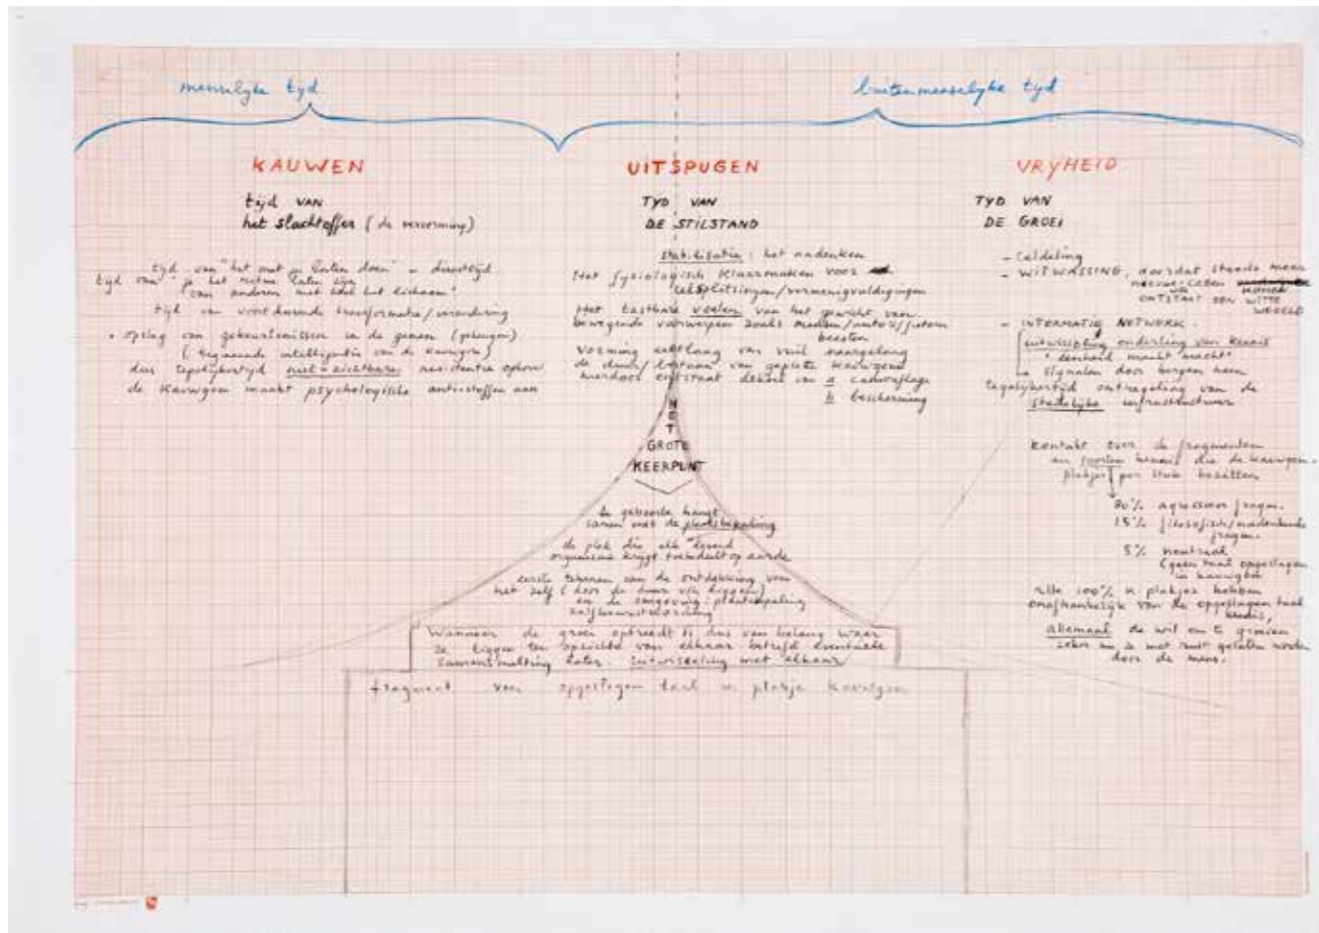 menselyke tyd
buitenmenselyke tyd
KAUWEN
tijd VAN
het slachtoffer (de vervorming)
tijd van "het met je laten doen" = duurtijd.
tijd van "je het ritme laten zijn
van anderen met heel het lichaam"
tijd van voortdurende transformatie/verandering
opslag van gebeurtenissen in de genen (geheugen)
(beginnende intelligentie van de kauwgom)
dus tegelijkertijd niet-zichtbare resistentie opbouw
de kauwgom maakt psychologische antistoffen aan
UITSPUGEN
TYD VAN
DE STILSTAND
stabilisatie: het nadenken
Het fysiologisch klaarmaken voor
celsplitsingen/vermenigvuldigingen
Het tastbare voelen van het gewicht van
bewegende voorwerpen zoals mensen/auto's/fietsen
beesten
vorming van vuil naargelang
de duur/bestaan van geplette kauwgom
hierdoor ontstaat deken van a camouflage
b bescherming
HET
GROTE
KEERPUNT
de geboorte hangt
samen met de plaatsbepaling
de plek die elk levend
organisme krijgt toebedeelt op aarde
eerste tekenen van de ontdekking van
het zelf (door de duur v/h liggen)
en de omgeving: plaatsbepaling
zelfbewustwording
Wanneer de groei optreedt is dus van belang waar
ze liggen ten opzichte van elkaar betreft eventuele
samensmelting later. Uitwisseling met elkaar
fragment van opgeslagen taal in plakje kauwgom
VRYHEID
TYD VAN
DE GROEI
- Celdeling
- WITWASSING, doordat steeds meer
nieuwe cellen
KOMEN
ONTSTAAT EEN WITTE
WERELD
- INFORMATIE NETWERK.
uitwisseling onderling van kennis
"eenheid maakt macht"
signalen door bergen heen
tegelijkertijd ontregeling van de
stedelijke infrastructuur
kontakt over de fragmenten
en soorten kennis die de kauwgom-
plakjes per stuk bezitten
80% agressieve fragm.
15% filosofisch/nadenkende
fragm.
5% neutraal
(geen taal opgeslagen
in kauwgom
alle 100% K plakjes hebben
onafhankelijk van de opgeslagen taal
kennis,
allemaal de wil om te groeien
zeker nu ze met rust gelaten worden
door de mens.